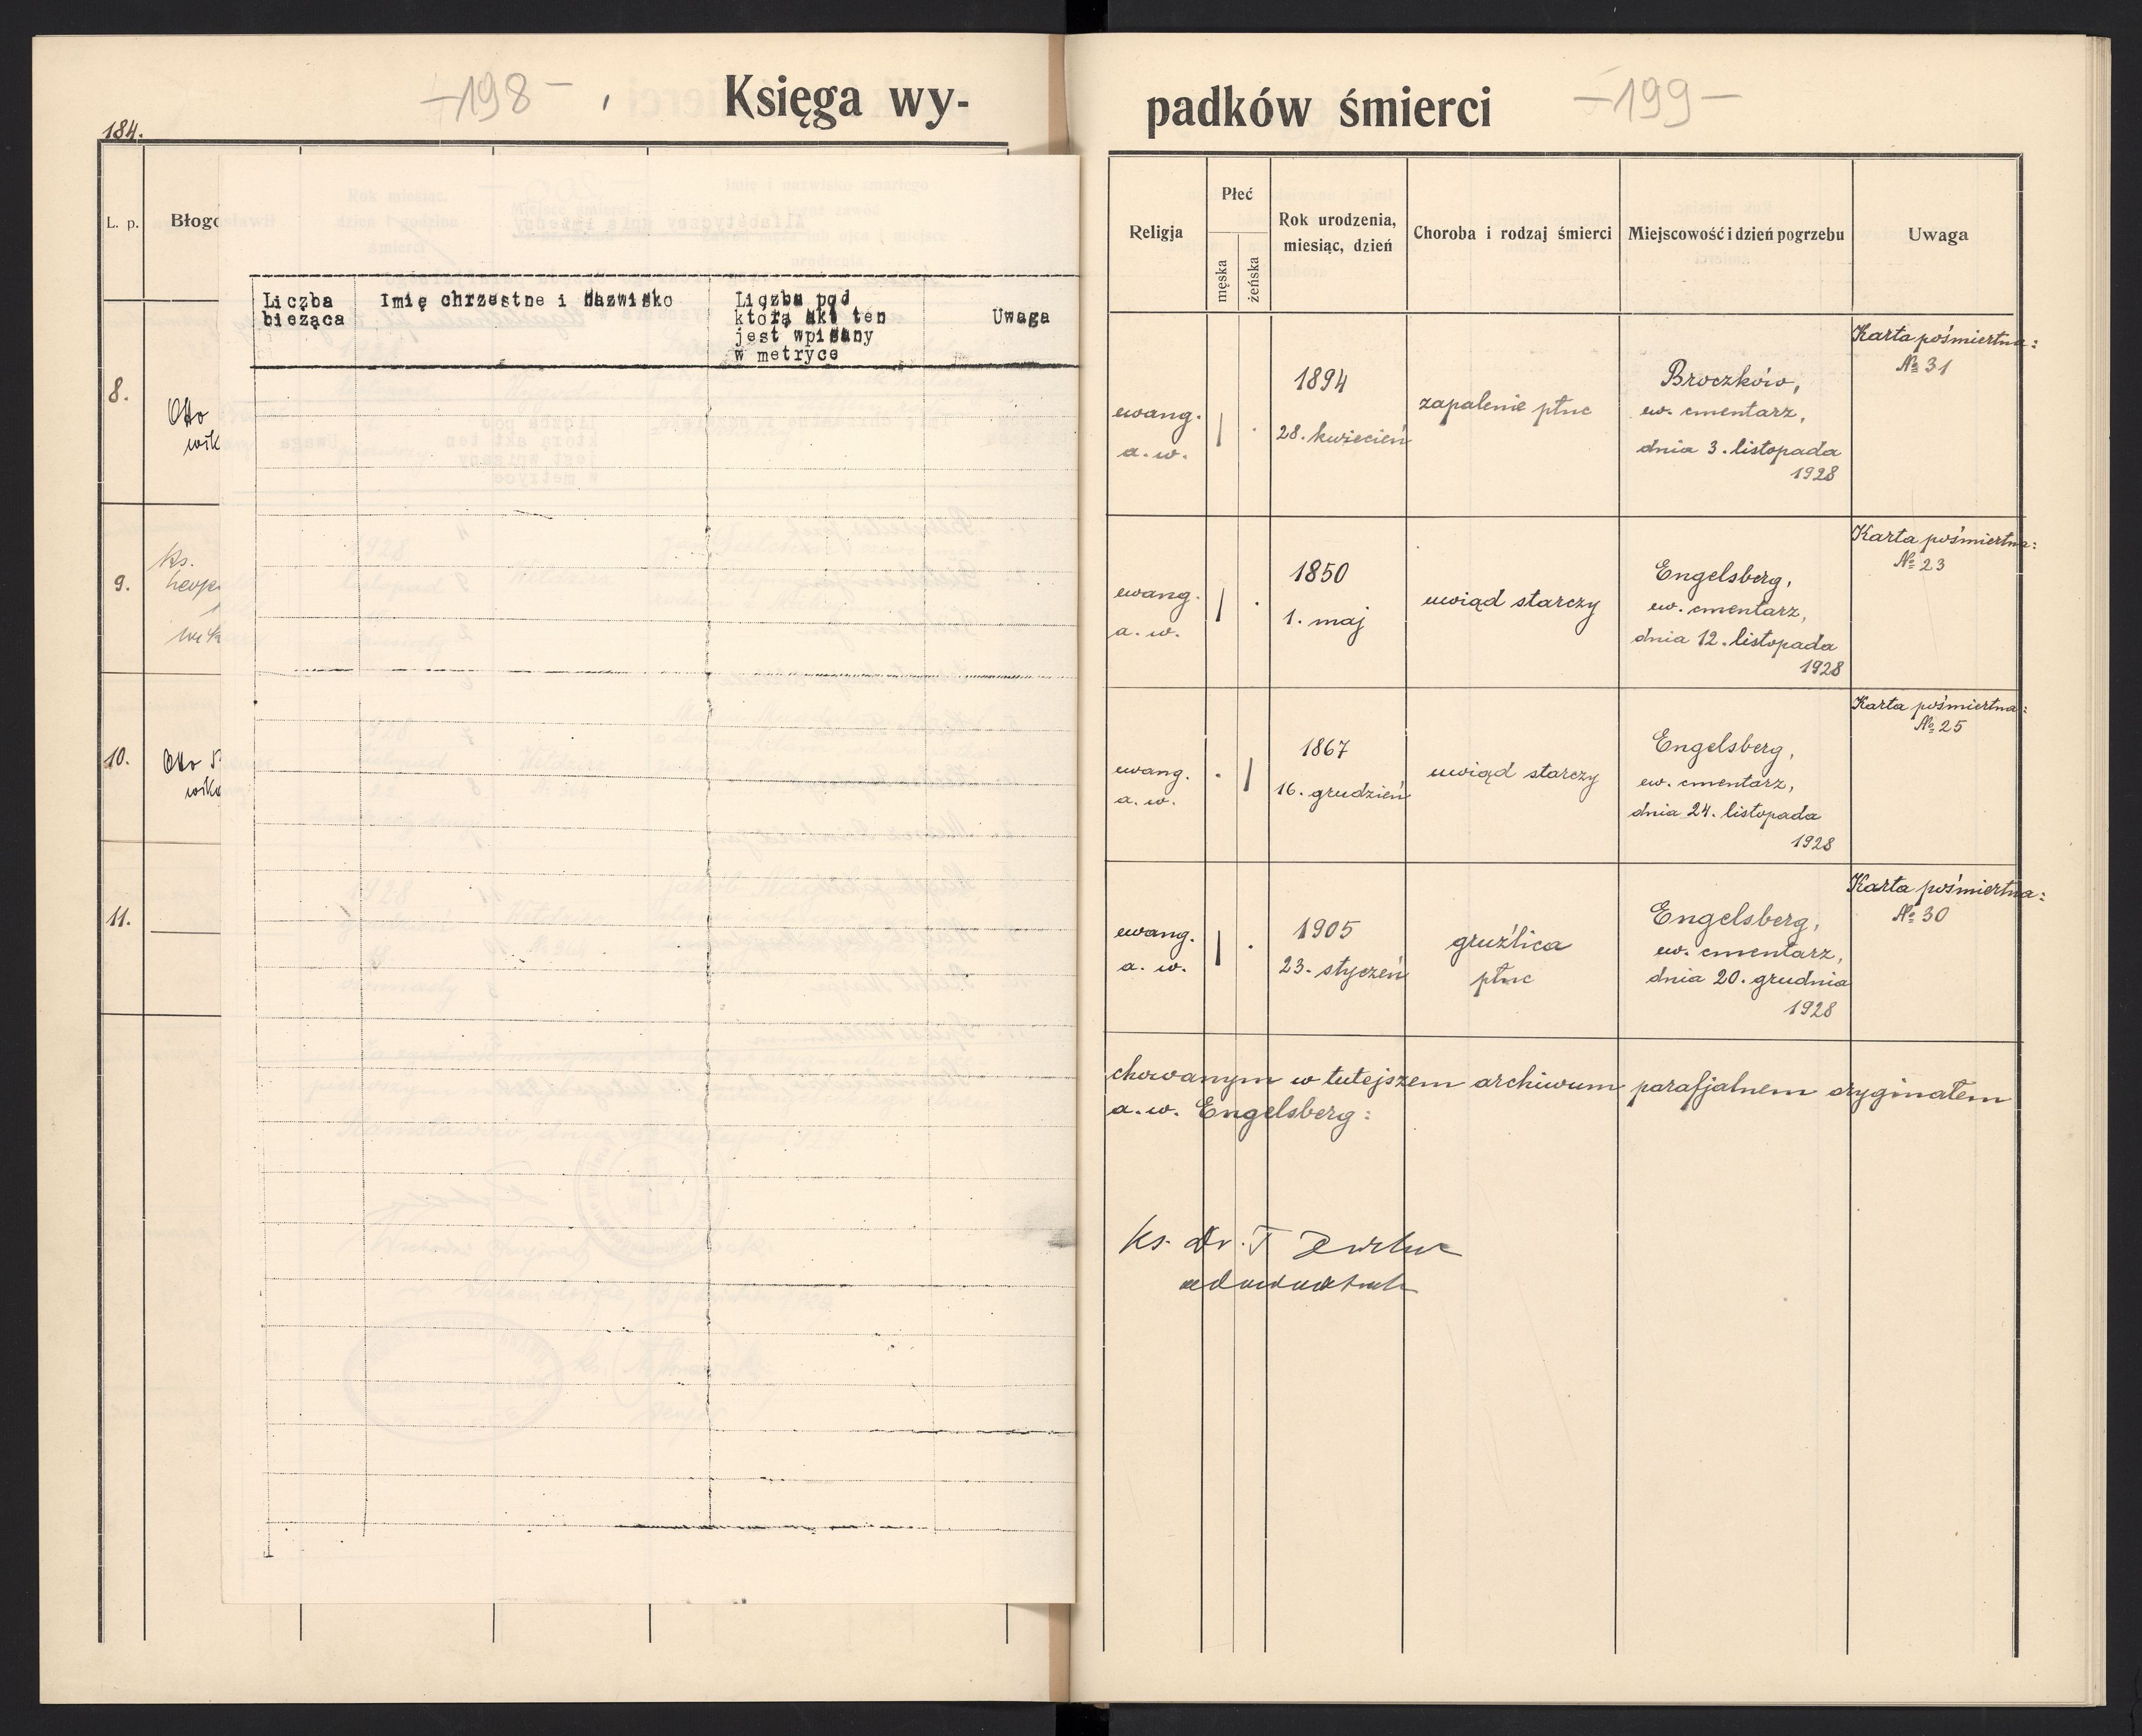 -198-
Księga wy-
184.
L. p.
Błogo
8.
Otto
wik
9.
ks.
Leop
wik
10.
Otto
wika
11.
Liczba
bieżąca
Imię chrzestne i Nazwisko
Liczba pod
którą akt ten
jest wpisany
w metryce
Uwaga
padków śmierci
-199-
Religja
Płeć
męska
żeńska
Rok urodzenia,
miesiąc, dzień
Choroba i rodzaj śmierci
Miejscowość i dzień pogrzebu
Uwaga
ewang.
a. w.
1894
28. kwiecień
zapalenie płuc
Broczków,
ew. cmentarz,
dnia 3. listopada
1928
Karta pośmiertna:
№ 31
ewang.
a. w.
1850
1. maj
uwiąd starczy
Engelsberg,
ew. cmentarz,
dnia 12. listopada
1928
Karta pośmiertna:
№ 23
ewang.
a. w.
1867
16. grudzień
uwiąd starczy
Engelsberg,
ew. cmentarz,
dnia 24. listopada
1928
Karta pośmiertna:
№ 25
ewang.
a. w.
1905
23. styczeń
gruźlica
płuc
Engelsberg,
ew. cmentarz,
dnia 20. grudnia
1928
Karta pośmiertna:
№ 30
chowanym w tutejszem archiwum parafjalnem oryginałem
a. w. Engelsberg:
ks. Dr. T